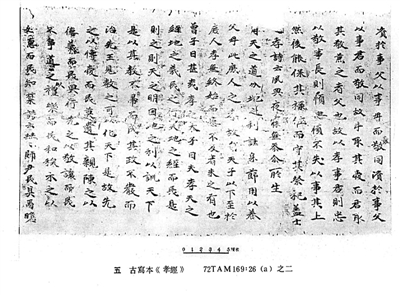 資於事父以事母而愛同資於事父
以事君而敬同故母取其愛而君取
其敬兼之者父也故以孝事君則忠
以敬事長則順忠順不失以事其上
然後能保其祿位而守其祭祀蓋士
之孝詩云夙興夜寐無忝所生
用天之道分地之利謹身節用以養
父母此庶人之孝故自天子以下至於
庶人孝無終始而患不及者未之有也
曾子曰甚哉孝之大子曰夫孝天之
經地之義民之行天地之經而民是
則之則天之明因地之利以訓天下
是以其教不肅而成其政不嚴而
治先王見教之可以化天下是故先
之以博愛而民莫遺其親陳之以
德義而民興行先之以敬讓而民
不爭道之以禮樂而民和睦示之以
好惡而民知禁詩云赫赫師尹民具爾瞻
0 1 2 3 4 5
五 古寫本《孝經》 72TAM169:26 (a) 之二